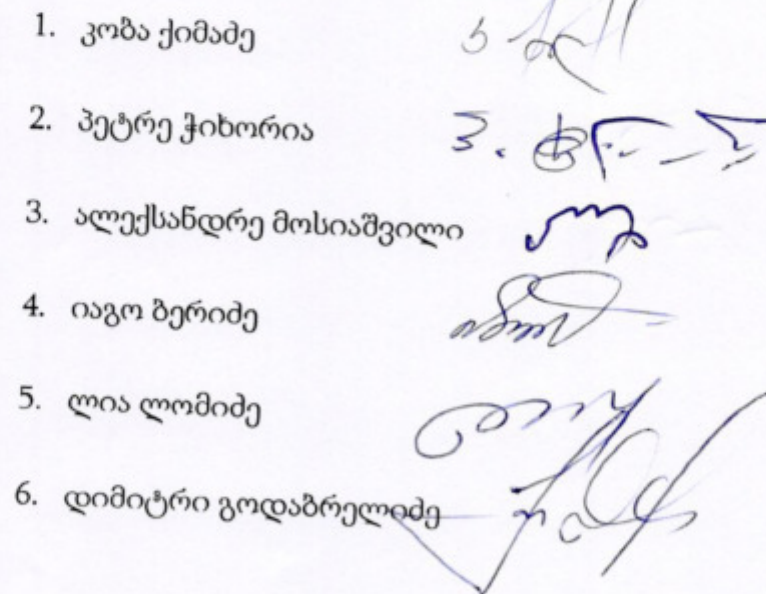 1. კობა ქიმაძე
2. პეტრე ჭიხორია
3. ალექსანდრე მოსიაშვილი
4. იაგო ბერიძე
5. ლია ლომიძე
6. დიმიტრი გოდაბრელიძე